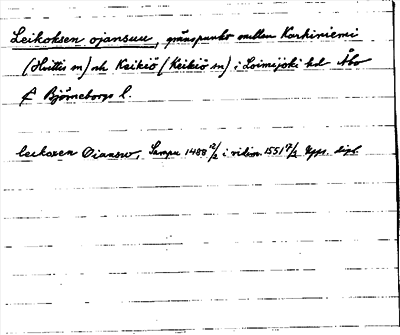 Leikoksen ojansuu, gränspunkt mellan Karhiniemi
(Huittis sn) och Keikiö (Keikiö sn), i Loimijoki hd Åbo
& Björneborgs l.
leikoxen Oiansw, Sampu 1488 12/2 i vidim. 1551 7/2 Upps. dipl.